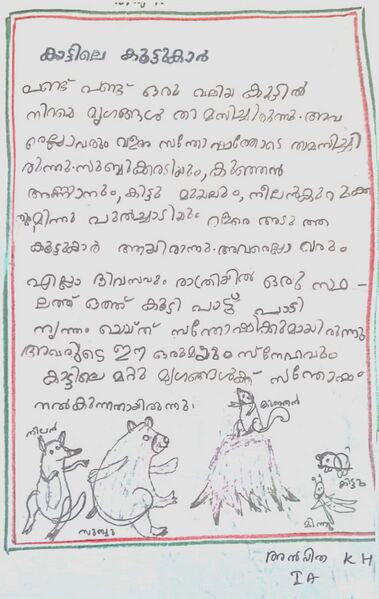 കാട്ടിലെ കൂട്ടുകാർ
പണ്ട് പണ്ട് ഒരു വലിയ കൂട്ടിൽ
നിറയെ മൃഗങ്ങൾ താമസിച്ചിരുന്നു. അവ
രെല്ലാവരും വളരെ സന്തോഷത്തോടെ താമസിച്ചി
രുന്നു. സുബ്ബുകരടിയും, കുഞ്ഞൻ
അണ്ണാനും, കിട്ടു മുയലും, നീലൻകുറുക്ക
നും മിന്നു പുൽച്ചാടിയും വളരെ അടുത്ത
കൂട്ടുകാർ ആയിരുന്നു. അവരെല്ലാവരും
എല്ലാ ദിവസവും രാത്രിയിൽ ഒരു സ്ഥ-
ലത്ത് ഒത്ത് കൂടി പാട്ട് പാടി
നൃത്തം ചെയ്ത് സന്തോഷിക്കുമായിരുന്നു
അവരുടെ ഈ ഒരുമയും സ്നേഹവും
കാട്ടിലെ മറ്റു മൃഗങ്ങൾക്ക് സന്തോഷം
നൽകുന്നതായിരുന്നു.
നീലൻ
കുഞ്ഞൻ
സുബ്ബു
കിട്ടു
മിന്നു
K H
I A